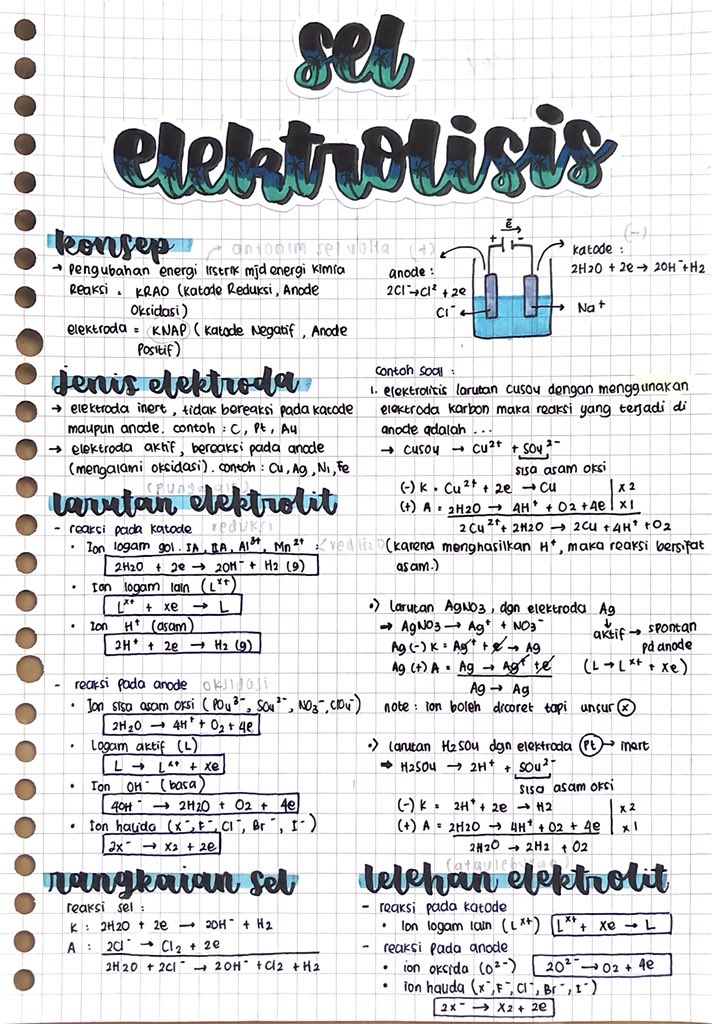 sel
elektrolisis
konsep → antonim sel volta
→ Pengubahan energi listrik mjd energi kimia
Reaksi = KRAO (Katode Reduksi, Anode
Oksidasi)
elektroda = KNAP (Katode Negatif, Anode
Positif)
ē
+ -
(+)
anode :
2Cl⁻→Cl² + 2e
Cl⁻
(-)
katode :
2H2O + 2e → 2OH⁻+H2
Na⁺
jenis elektroda
→ elektroda inert, tidak bereaksi pada katode
maupun anode. contoh : C, Pt, Au
→ elektroda aktif, bereaksi pada anode
(mengalami oksidasi). contoh : Cu, Ag, Ni, Fe
larutan elektrolit
- reaksi pada katode reduksi
• Ion logam gol. IA, IIA, Al³⁺, Mn²⁺ :
2H2O + 2e → 2OH⁻ + H2 (g)
• Ion logam lain (Lˣ⁺)
Lˣ⁺ + xe → L
• Ion H⁺ (asam)
2H⁺ + 2e → H2 (g)
- reaksi pada anode oksidasi
• Ion sisa asam oksi (PO4³⁻, SO4²⁻, NO3⁻, ClO4⁻)
2H2O → 4H⁺ + O2 + 4e
• Logam aktif (L)
L → Lˣ⁺ + xe
• Ion OH⁻ (basa)
4OH⁻ → 2H2O + O2 + 4e
• Ion halida (X⁻, F⁻, Cl⁻, Br⁻, I⁻)
2x⁻ → x2 + 2e
rangkaian sel
reaksi sel :
K : 2H2O + 2e → 2OH⁻ + H2
A : 2Cl⁻ → Cl2 + 2e
2H2O + 2Cl⁻ → 2OH⁻ + Cl2 + H2
contoh soal :
1. elektrolisis larutan CuSO4 dengan menggunakan
elektroda karbon maka reaksi yang terjadi di
anode adalah ...
→ CuSO4 → Cu²⁺ + SO4²⁻
sisa asam oksi
(-) K = Cu²⁺ + 2e → Cu | x2
(+) A = 2H2O → 4H⁺ + O2 + 4e | x1
2Cu²⁺ + 2H2O → 2Cu + 4H⁺ + O2
(karena menghasilkan H⁺, maka reaksi bersifat
asam.)
•) larutan AgNO3, dgn elektroda Ag
⇒ AgNO3 → Ag⁺ + NO3⁻
aktif → spontan
pd anode
Ag (-) K = Ag⁺ + e → Ag
Ag (+) A = Ag → Ag⁺ + e
(L → Lˣ⁺ + xe)
Ag → Ag
note : ion boleh dicoret tapi unsur (x)
•) larutan H2SO4 dgn elektroda (Pt) → inert
⇒ H2SO4 → 2H⁺ + SO4²⁻
sisa asam oksi
(-) K = 2H⁺ + 2e → H2 | x2
(+) A = 2H2O → 4H⁺ + O2 + 4e | x1
2H2O → 2H2 + O2
lelehan elektrolit
- reaksi pada katode
• Ion logam lain (Lˣ⁺) Lˣ⁺ + xe → L
- reaksi pada anode
• ion oksida (O²⁻) 2O²⁻ → O2 + 4e
• ion halida (X⁻, F⁻, Cl⁻, Br⁻, I⁻)
2x⁻ → x2 + 2e